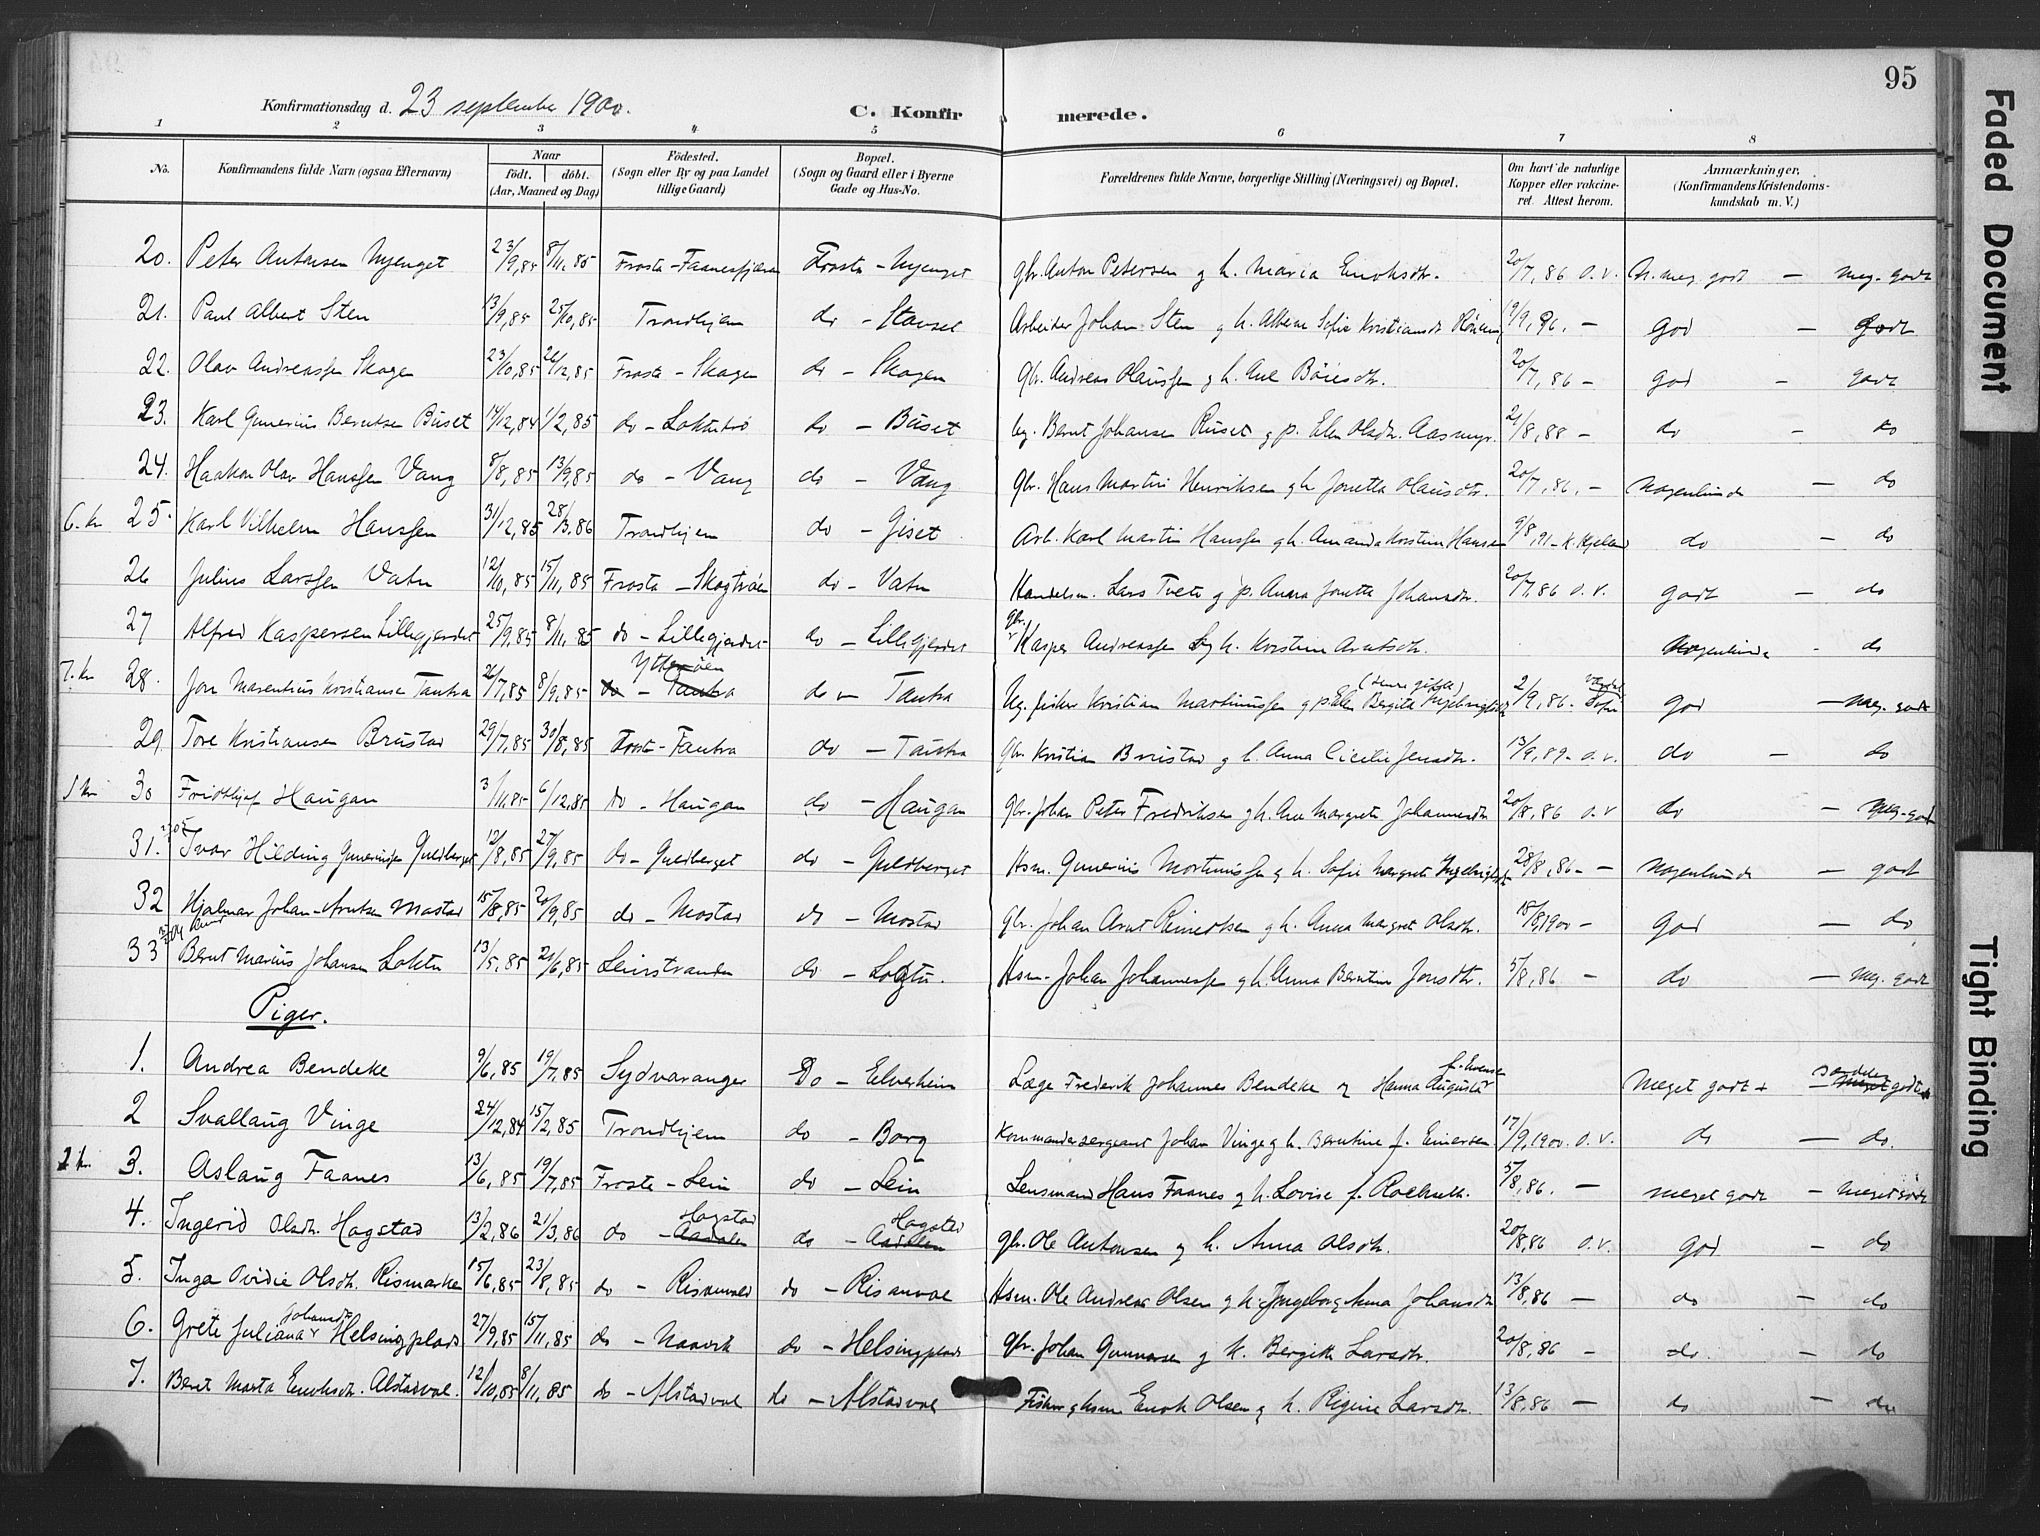 95
Konfirmationsdag d. 23 september 1900. C. Konfirmerede.
1 2 3 4 5 6 7 8
No. Konfirmandens fulde Navn (ogsaa Efternavn) Naar født. døbt. (Aar, Maaned og Dag) Fødested. (Sogn eller By og paa Landet tillige Gaard) Bopæl. (Sogn og Gaard eller i Byerne Gade og Hus-No. Forældrenes fulde Navne, borgerlige Stilling (Næringsvei) og Bopæl. Om havt de naturlige Kopper eller vaccineret. Attest herom. Anmærkninger. (Konfirmandens Kristendomskundskab m. V.)
20. Peter Antonsen Nyenget 23/9,85 8/11,85 Frosta - Faanesfjæren Frosta - Nyenget gbr. Anton Petersen og h. Maria Enoksdtr. 20/7,86 O.V. N. meg. godt — meg. godt
21. Paul Albert Sten 13/9,85 25/10,85 Trondhjem do - Stavset Arbeider Johan Sten og h. Sofie 19/9,96. — god — godt
22. Olav Andreassen Skogen 23/10,85 26/12,85 Frosta - Skogen do - Skogen Gbr. Andreas Olaussen og h. Ane Bøiesdtr. 20/7,86 — god — godt
23. Karl Gunerius Berntsen Buset 14/12,84 1/2,85 do - Loktutrø do - Buset Ug. Bernt Johansen Ruset og p. Elen Olsdtr. Aasmyr. 21/8,88 — do — do
24. Haakon Olav Hanssen Vang 8/8,85 13/9,85 do - Vang do - Vang Gbr. Hans Martin Henriksen og h. Jonetta Olausdtr. 20/7,86. — Nogenlunde — do
6. kr 25. Karl Vilhelm Hanssen 31/12,85 28/3.86 Trondhjem do - Giset Arb. Karl Martin Hanssen og h. Amanda Kristine Hansen 9/8,91 - K. do — do
26 Julius Larssen Vatn 12/10,85 15/11,85 Frosta - Skogtrøen do - Vatn Handelsm. Lars Tvete og p. Anna Jonetta Johansdtr. 20/7,86 O.V. godt — do
27 Alfred Kaspersen Lillegjerdet 25/9,85 8/11,85 do - Lillegjerdet do - Lillegjerdet gbr. Kasper Andreassen og h. Kristine Arntsdtr. Nogenlunde - do
7. kr 28. Jon Marentius Kristiansen Tautra 26/7,85 8/9,85 Ytterøen do - Tautra do - Tautra Ug. fisker Kristian Martinussen og p. Elen Bergitte Ingebrigtsdtr. 2/9,86. god — meg. godt
29. Tore Kristiansen Brustad 29/7,85 30/8,85 Frosta - Tautra do - Tautra Gbr. Kristian Brustad og h. Anna Cicilie Jensdtr. 13/9,89 - O.V. do — do
1 kr 30 Fridthjof Haugan 3/11,85 6/12,85 do - Haugan do - Haugan Gbr. Johan Peter Fredriksen og h. Ane Margrete Johannesdtr 20/8,86 O.V do — meg. godt
31. Ivar Hilding Guneriussen Guldberget 12/8,85 27/9,85 do - Guldberget do - Guldberget Hsm. Gunerius Mortinussen og h. Sofie Margrete Ingebrigtsdtr 28/8,86 - — Nogenlunde — godt
32 Hjalmar Johan Arntsen Mostad 15/8,85 20/9,85 do - Mostad do - Mostad Gbr. Johan Arnt Reinertsen og h. Anna Margret Olsdtr. 18/8,1900 - god — do
33 Bernt Marius Johansen Loktu 13/5,85 21/6,85 Leinstranden do - Logtu. Hsm. Johan Johannessen og h. Anna Berntine Jonsdtr. 5/8,86 — do — meg. godt
Piger.
1. Andrea Bendeke 9/6,85 19/7,85 Sydvaranger Do - Elverheim Læge Frederik Johannes Bendeke og Hanna Augusta f. Evensen Meget godt + særdeles meget godt
2 Svallaug Vinge 24/12,84 15/2,85 Trondhjem do - Borg Kommandersergeant Johan Vinge og h. Berntine f. Einersen 17/9,1900. O.V. do — do.
2 kr. 3. Aslaug Faanes 13/6,85 19/7,85 Frosta - Lein do - Lein Lensmand Hans Faanes og h. Lovise f. 5/8,86. — meget godt — meget godt
4. Ingerid Olsdtr. Hogstad 13/2,86 21/3,86 do - Hogstad Aadalen do - Hogstad Aadalen gbr. Ole Antonsen og h. Anna Olsdtr. 20/8,86 O.V. god — do
5. Inga Ovidie Olsdtr. Rismarken 15/6,85 23/8,85 do - Risanvald do - Risanvol Hsm. Ole Andreas Olsen og h. Ingeborg Anna Johansdtr 13/8,86 — do — do
6. Grete Juliana Johansdtr Helsingplads 27/9,85 15/11,85 do - Naavik do - Helsingplads gbr. Johan Gunnarsen og h. Bergitte Larsdtr. 20/8,86 — do. — do
7. Beret Marta Enoksdtr. Alstadvol. 12/10,85 8/11,85 do - Alstadvol do - Alstadvol Fisker og hsm Enok Olsen og h. Regine Larsdtr. 13/8,86 — do — do
Faded Document
Tight Binding